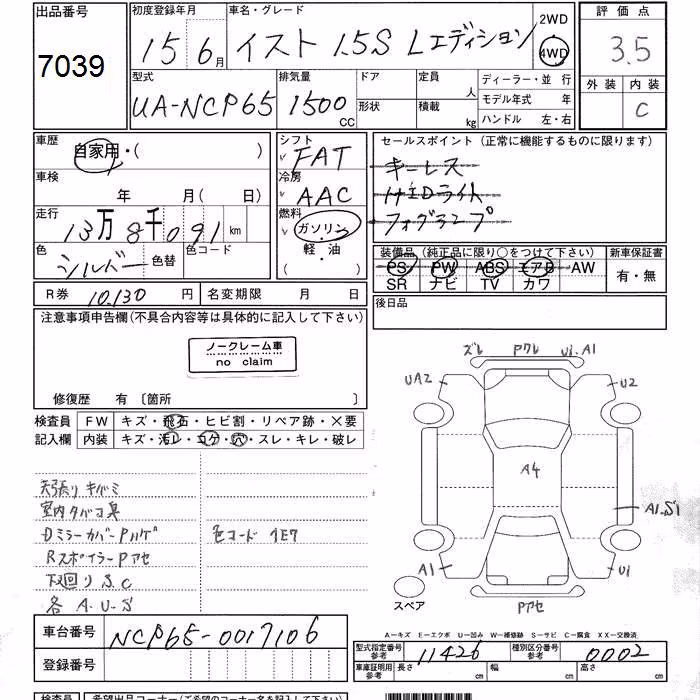 出品番号
7039
初度登録年月
15 6月
車名・グレード
イスト 1.5S Lエディション
2WD
4WD
評価点
3.5
外装 内装
C
型式
UA-NCP65
排気量
1500
CC
ドア
形状
定員
人
積載
kg
ディーラー・並 行
モデル年式 年
ハンドル 左・右
車歴
自家用・( )
車検
年 月(日)
走行
13万8千091 km
色
シルバー
色替
色コード
シフト
FAT
冷房
AAC
燃料
ガソリン
軽・油
セールスポイント(正常に機能するものに限ります)
キーレス
HIDライト
フォグランプ
装備品(純正品に限り○をつけて下さい)
PS PW ABS エアB AW
SR ナビ TV カワ
新車保証書
有・無
R券 10,130 円
名変期限 月 日
後日品
注意事項申告欄(不具合内容等は具体的に記入して下さい)
ノークレーム車
no claim
修復歴 有〔箇所 〕
検査員
記入欄
FW キズ・飛石・ヒビ割・リペア跡・×要
内装 キズ・汚レ・コゲ・穴・スレ・キレ・破レ
天張り キバミ
室内タバコ臭
DミラーカバーPハゲ
RスポイラーPアセ
下回りS.C
各A.U.S
色コード 1E7
ズレ Pワレ U1.A1
UA2
U2
A4
A1.S1
A1
U1
Pアセ
スペア
車台番号
NCP65-0017106
登録番号
A－キズ E－エクボ U－凹み W－補修跡 S－サビ C－腐食 XX－交換済
型式指定番号
参考
11426
種別区分番号
参考
0002
車庫証明用
参考
長さ cm
幅 cm
高さ cm
検査員
希望出品コーナー(ご希望のコーナー名を記入して下さい)